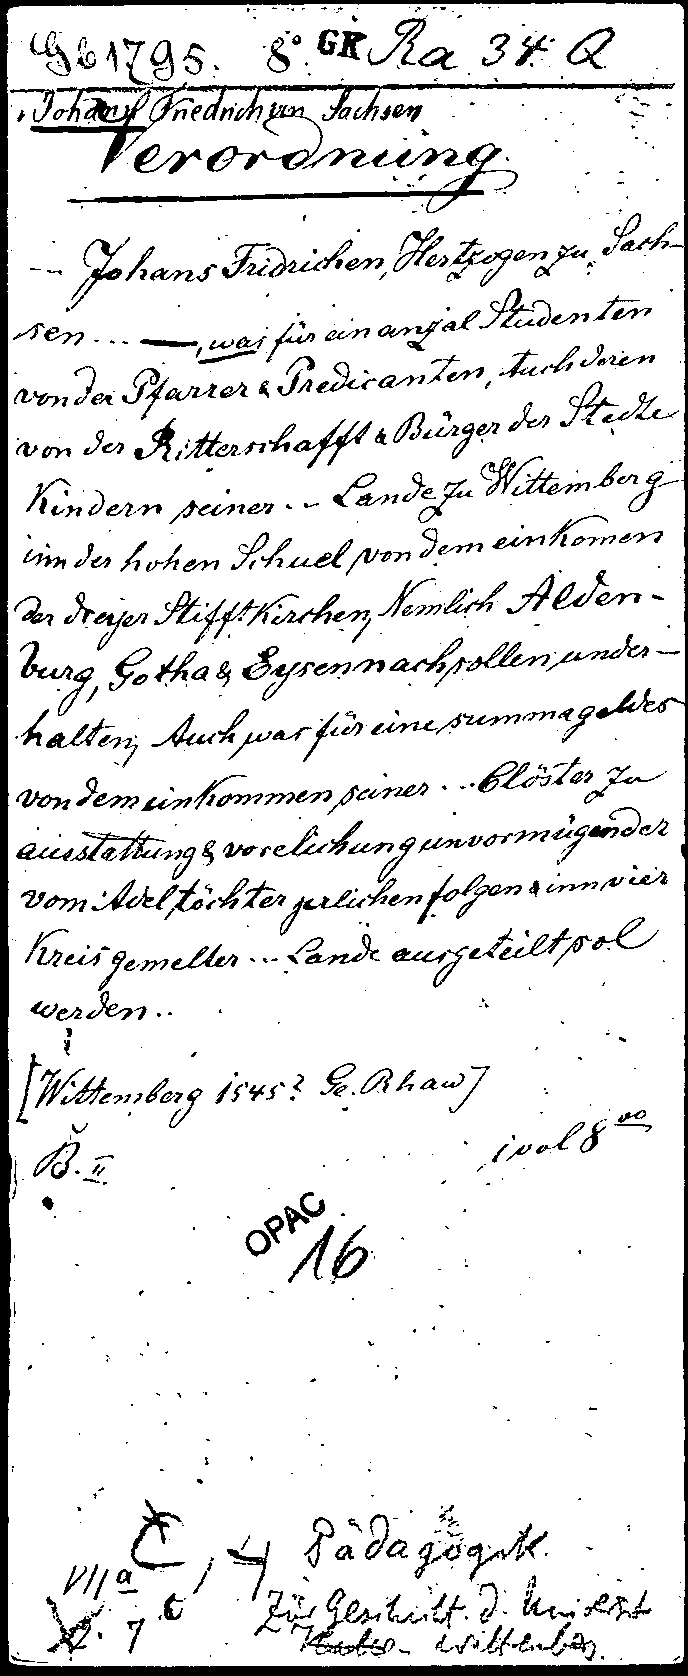 Gb 1795. 8° GK Ra 34 Q
Johann Friedrich von Sachsen
Verordnung
... Johans Fridrichen, Hertzogen zu Sach-
sen ... —, was für ein anzal Studenten
von der Pfarrer & Predicanten, Auch deren
von der Ritterschafft & Bürger der Stedte
Kindern seiner ... Lande zu Wittemberg
inn der hohen Schuel von dem einkomen
der dreyer Stifft Kirchen, Nemlich Alden-
burg, Gotha & Eysennach sollen under-
halten, Auch was für eine summa geldes
von dem einkommen seiner ... Clöster zu
ausstattung & vorelichung unvormügender
vom Adel töchter jerlichen folgen & inn vier
Kreis gemelter ... Lande ausgeteilt sol
werden..
[Wittemberg 1545? Ge. Rhaw]
B. II 1 vol 8vo
OPAC
16
C, 4 Pädagogik.
VII a
Zur Geschicht. d. Universit
7 Wittenberg.